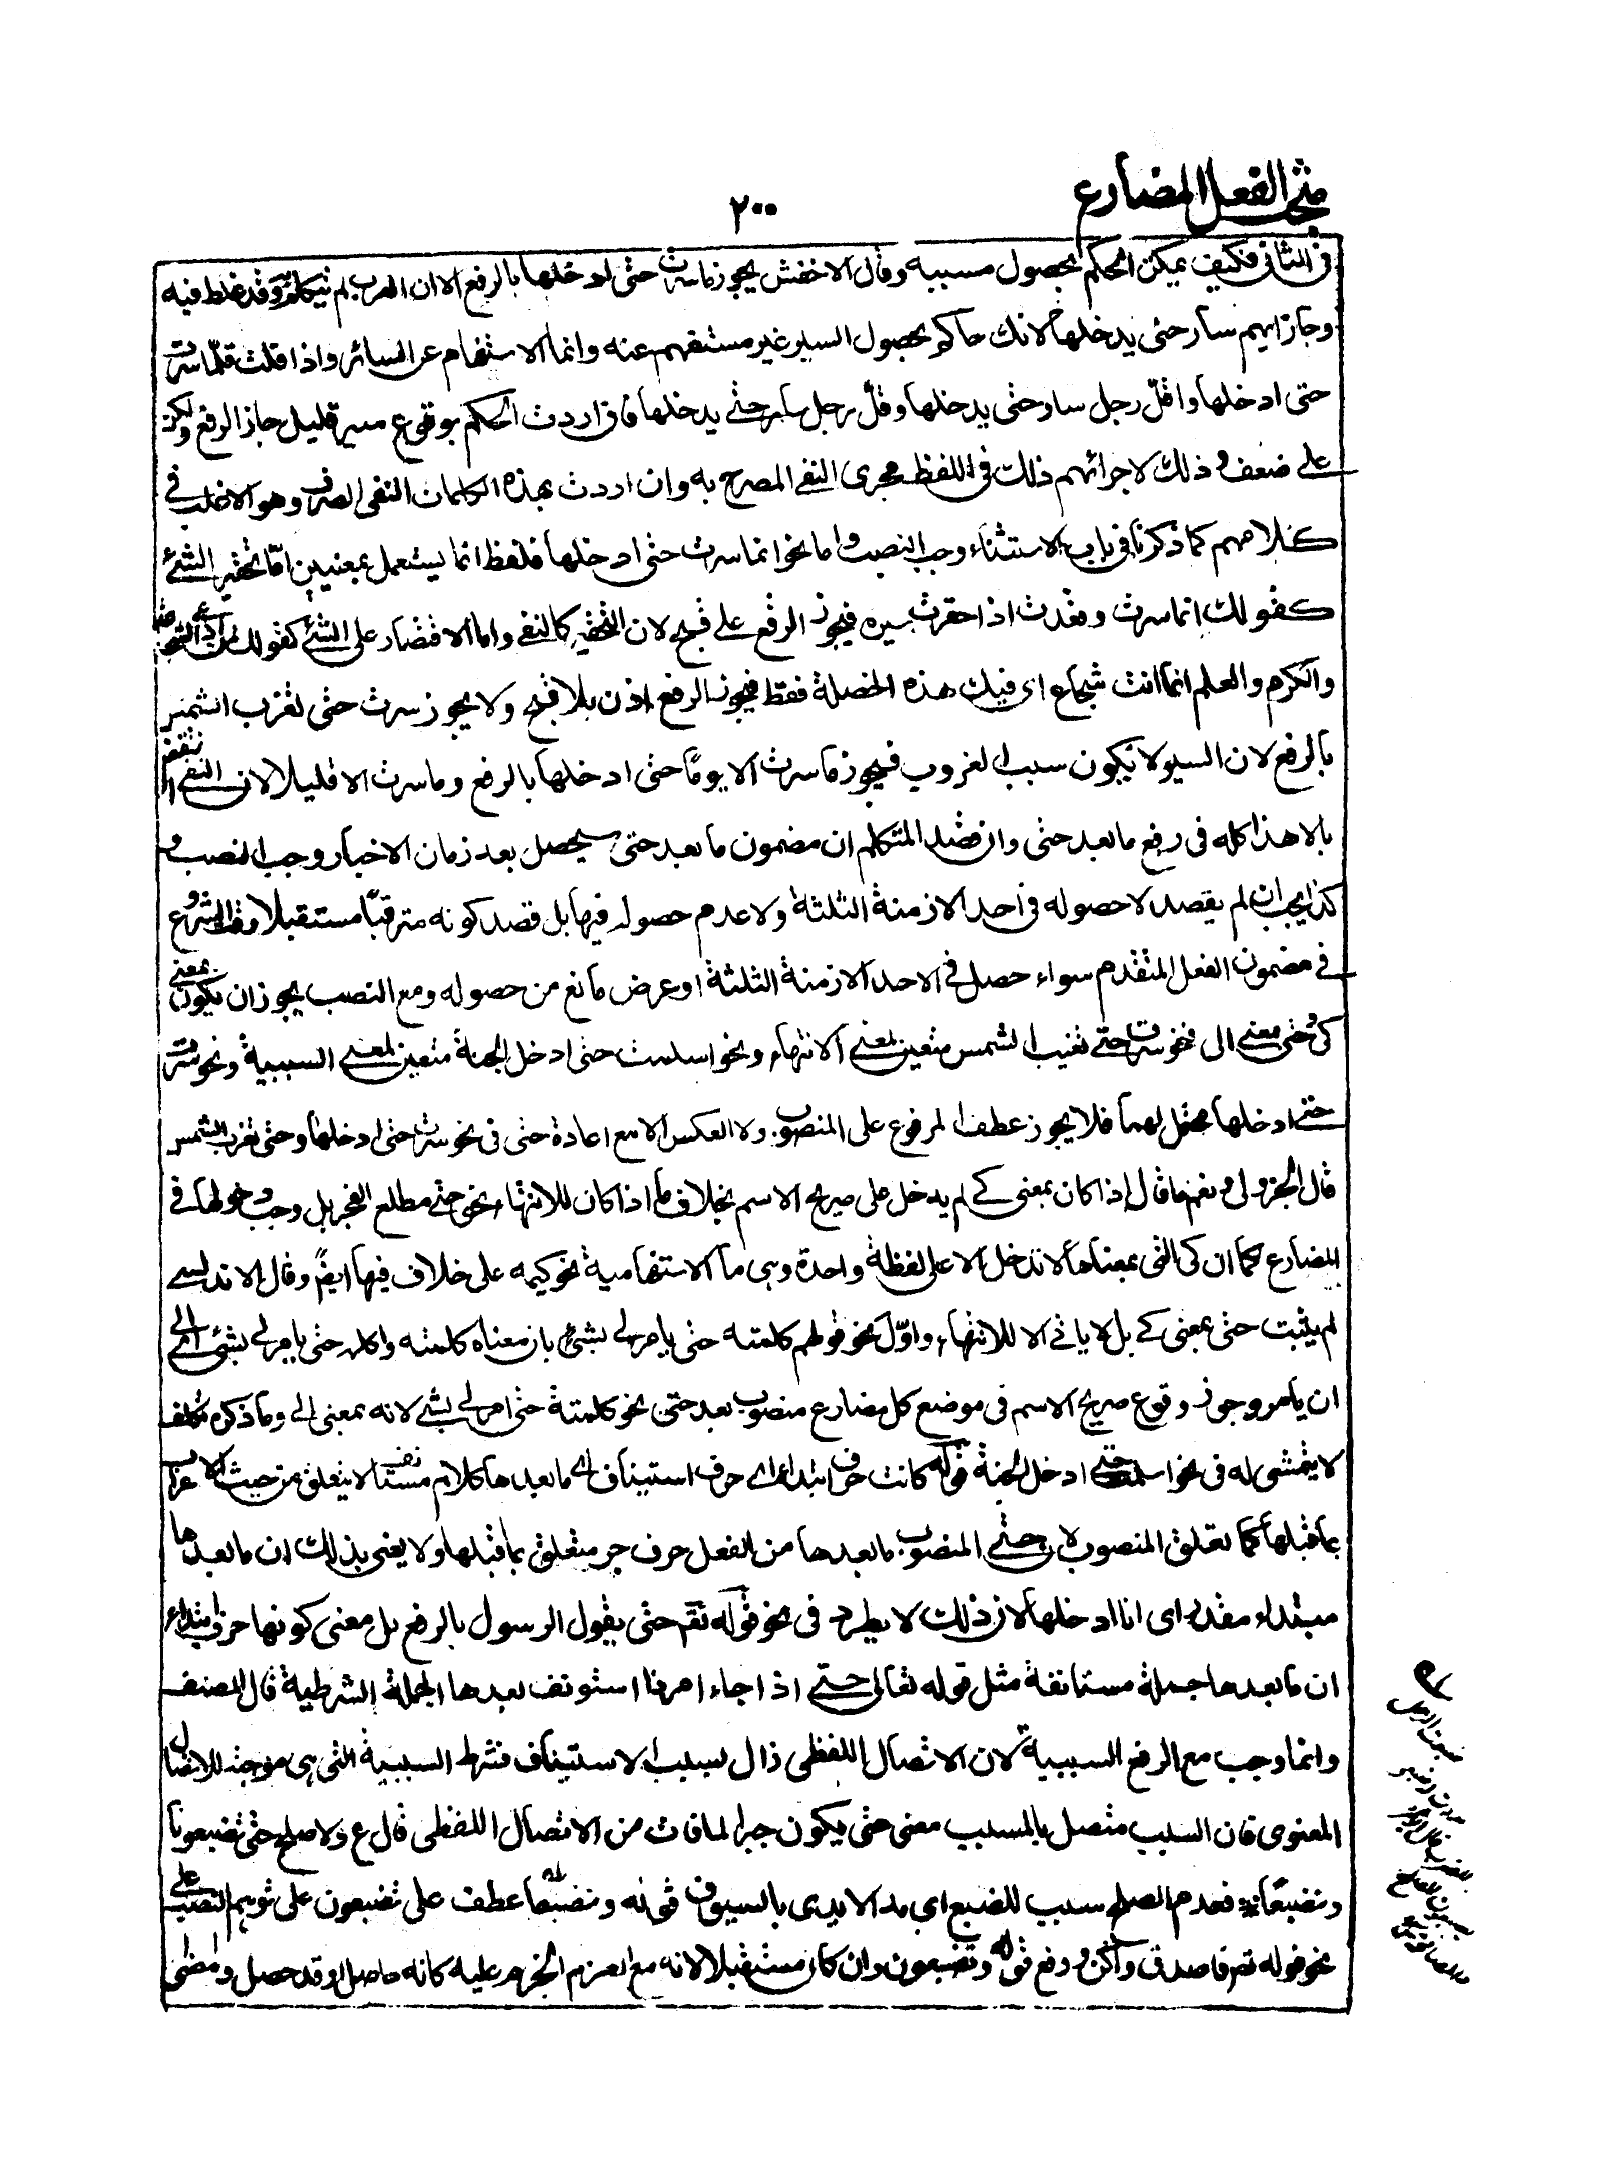 مبحث الفعل المضارع
٢٠٠
فى الثانى فكيف يمكن الحكم بحصول مسببه وقال الاخفش يجوز ماسرت حتى ادخلها بالرفع الا ان العرب لم تتكلم وقد غلط فيه
وجاز ايهم سار حتى يدخلها لانك حاكم بحصول السير غير مستفهم عنه وانما الاستفهام عن السائر واذا قلت قلما سرت
حتى ادخلها واقل رجل سار حتى يدخلها وقل رجل سار حتى يدخلها فان اردت الحكم بوقوع سير قليل جاز الرفع ولكن
على ضعف وذلك لاجرائهم ذلك فى اللفظ مجرى النفى المصرح به وان اردت بهذه الكلمات النفى الصرف وهو الاغلب فى
كلامهم كما ذكرنا فى باب الاستثناء وجب النصب واما نحو انما سرت حتى ادخلها فلفظ انما يستعمل بمعنيين اما تحقير الشئ
كقولك انما سرت وقعدت اذا حقرت سيره فيجوز الرفع على قبح لان التحقير كالنفى واما الاقتصار على الشئ كقولك
والكرم والعلم انما انت شجاع اى فيك هذه الخصلة فقط فيجوز الرفع اذن بلا قبح ولا يجوز سرت حتى تغرب الشمس
بالرفع لان السير لا يكون سببا لغروب فيجوز ماسرت الا يوما حتى ادخلها بالرفع وما سرت الا قليلا لان النفى انتقض
بالا هذا كله فى رفع مابعد حتى وان قصد المتكلم ان مضمون مابعد حتى سيحصل بعد زمان الاخبار وجب النصب و
كذا يجب ان لم يقصد لا حصوله فى احد الازمنة الثلثة ولا عدم حصوله فيها بل قصد كونه مترقبا مستقبلا وقت الشروع
فى مضمون الفعل المتقدم سواء حصل فى الاحد الازمنة الثلثة او عرض مانع من حصوله ومع النصب يجوز ان يكون بمعنى
كى وحتى بمعنى الى فنحو سرت حتى تغيب الشمس متعين لمعنى الانتهاء ونحو اسلمت حتى ادخل الجنة متعين لمعنى السببية ونحو سرت
حتى ادخلها محتمل لهما فلا يجوز عطف المرفوع على المنصوب ولا العكس الا مع اعادة حتى فى نحو سرت حتى ادخلها وحتى تغرب الشمس
قال الجزولى ونعم ماقال اذا كان بمعنى كے لم يدخل على صريح الاسم بخلاف ما اذا كان للانتهاء نحو حتى مطلع الفجر بل وجب دخولها فى
المضارع كما ان كى التى بمعناها لا تدخل الا على لفظة واحدة وهى ما الاستفهامية نحو كيمه على خلاف فيها ايضً وقال الاندلسے
لم يثبت حتى بمعنى كے بل لا ياتے الا للانتهاء واوّل نحو قولهم كلمته حتى يامر لے بشئ بان معناه كلمته واكلمه حتى يامر لے بشئ الى
ان يامر وجوز وقوع صريح الاسم فى موضع كل مضارع منصوب بعد حتى نحو كلمتة حتى امر لے بشے لانه بمعنى الے وما ذكره تكلف
لا يتمشى له فى نحو اسلمت حتى ادخل الجنة قوله كانت حرف ابتداء اے حرف استيناف اے مابعدها كلام مستانف لا يتعلق من حيث الاعراب
بما قبلها كما تعلق المنصوب لان حتے المنصوب مابعدها من الفعل حرف جر متعلق بما قبلها ولا يعنى بذلك ان مابعدها
مبتداء مقدر اى انا ادخلها لان ذلك لا يطرد فى نحو قوله تقم حتى يقول الرسول بالرفع بل معنى كونها حرف ابتداء
ان مابعدها جملة مستانفة مثل قوله تعالى حتے اذا جاء امرنا استونف بعدها الجملة الشرطية قال المصنف
وانما وجب مع الرفع السببية لان الاتصال اللفظى زال بسبب الاستيناف فشرط السببية التى هى موجبة للاتصال
المعنوى فان السبب متصل بالمسبب معنى حتى يكون جبرا لما فات من الاتصال اللفظى قال ع ولا صلح حتى تضبعونا
ونضبعا ؞ فعدم الصلح سبب للضبع اى مد الايدى بالسيوف قوله ونضبعا عطف على تضبعون على توهم النصب على
نحو قوله تم فاصدق واكن ورفع قوله وتضبعون وان كان مستقبلا لانه مع العزم الجزم عليه كانه حاصل او قد حصل ومضى